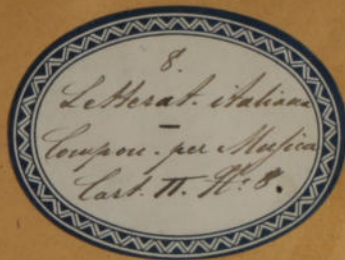 8.
Letterat. italiana
—
Compon. per Musica
Cart. II. N: 8.